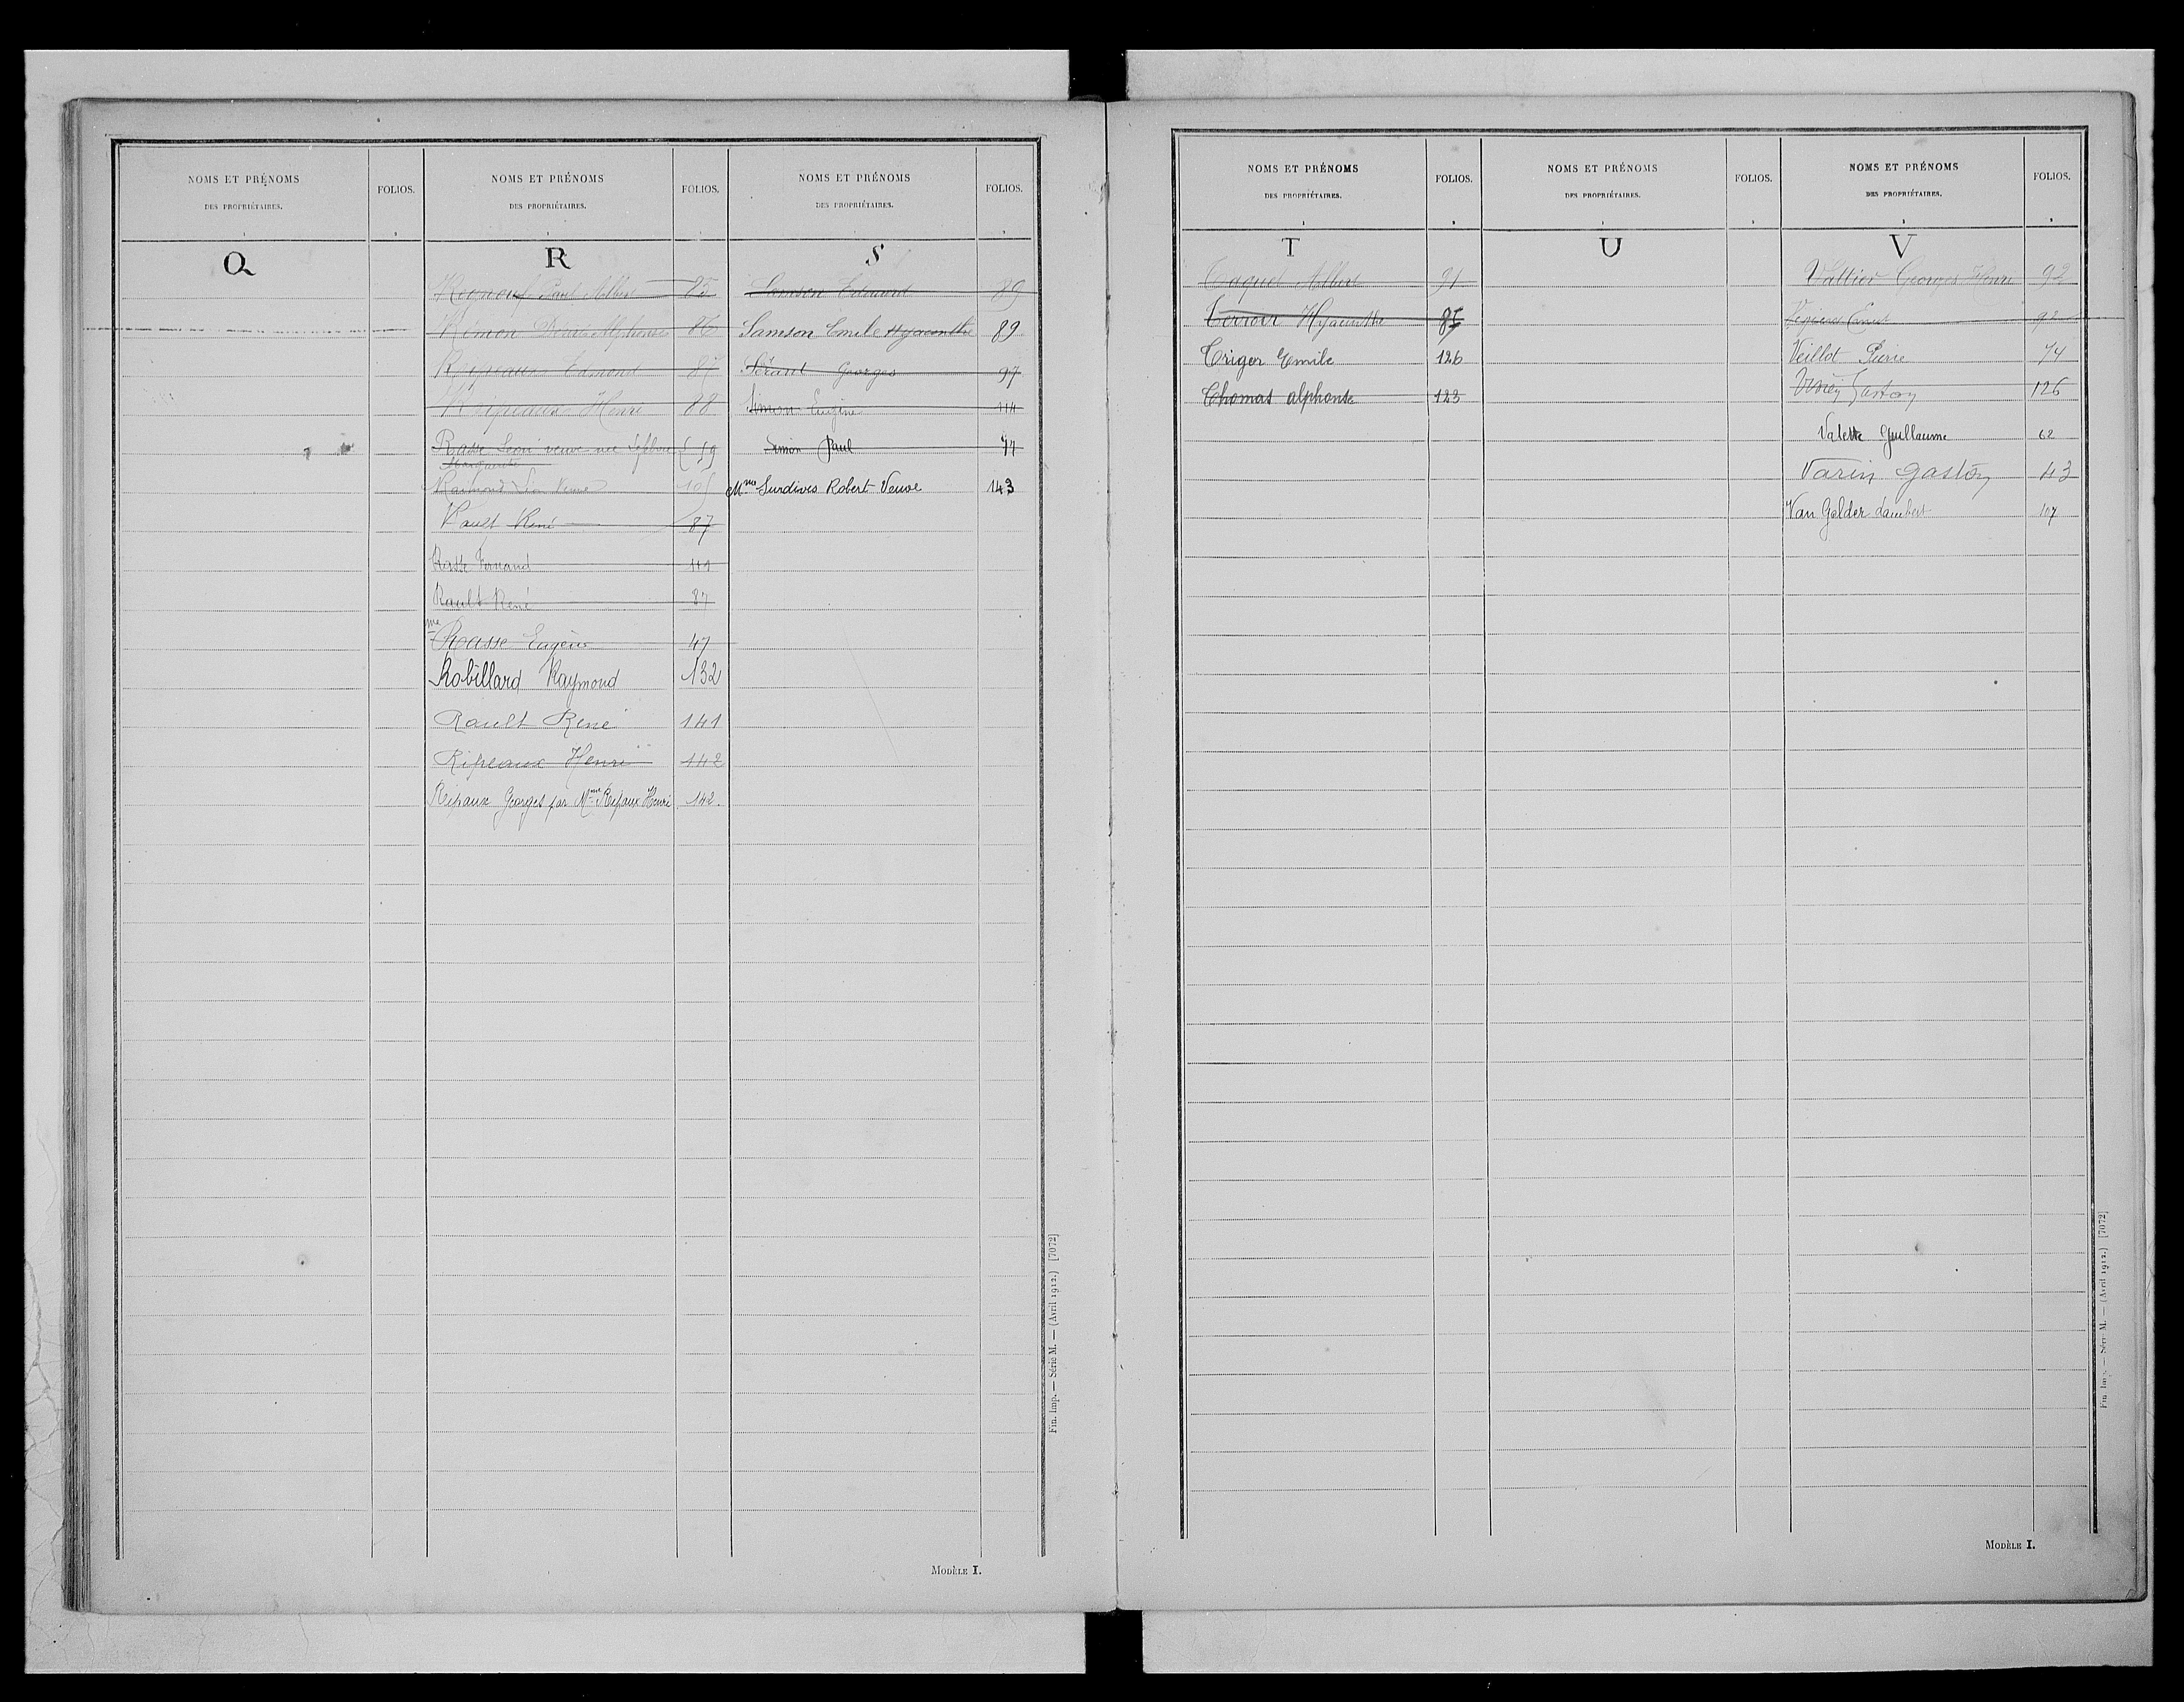 NOMS ET PRÉNOMS
DES PROPRIÉTAIRES.
FOLIOS.
NOMS ET PRÉNOMS
DES PROPRIÉTAIRES.
FOLIOS.
NOMS ET PRÉNOMS
DES PROPRIÉTAIRES.
FOLIOS.
Q
R
Regnouf Paul Albert 85
Rimon Alphonse 86
Edmond 87
Henri 88
Rasse veuve née 59
Marguerite
Raimond Léon Veuve 105
Rault René 87
Rasse Fernand 101
Rault René 87
me Rasse Eugène 47
Robillard Raymond 132
Rault René 141
Ripeaux Henri 142
Ripaux Georges par Mme Ripaux Henri 142.
S
Samson Edouard 89
Samson Emile Hyacinthe 89
Georges 97
Simon Eugène 114
Simon Paul 77
Mme Surdives Robert Veuve 143
Fin. Imp. — Série M. — (Avril 1912.) [7072]
MODÈLE I.
NOMS ET PRÉNOMS
DES PROPRIÉTAIRES.
FOLIOS.
NOMS ET PRÉNOMS
DES PROPRIÉTAIRES.
FOLIOS.
NOMS ET PRÉNOMS
DES PROPRIÉTAIRES.
FOLIOS.
T
Taquet Albert 91
Terroir Hyacinthe 87
Triger Emile 126
Thomas alphonse 123
U
V
Vattier Georges Henri 92
Ernest 92
Veillot Pierre 74
Gaston 126
Valette Guillaume 62
Varin Gaston 43
Van Gelder Lambert 107
Fin. Imp. — Série M. — (Avril 1912.) [7072]
MODÈLE I.